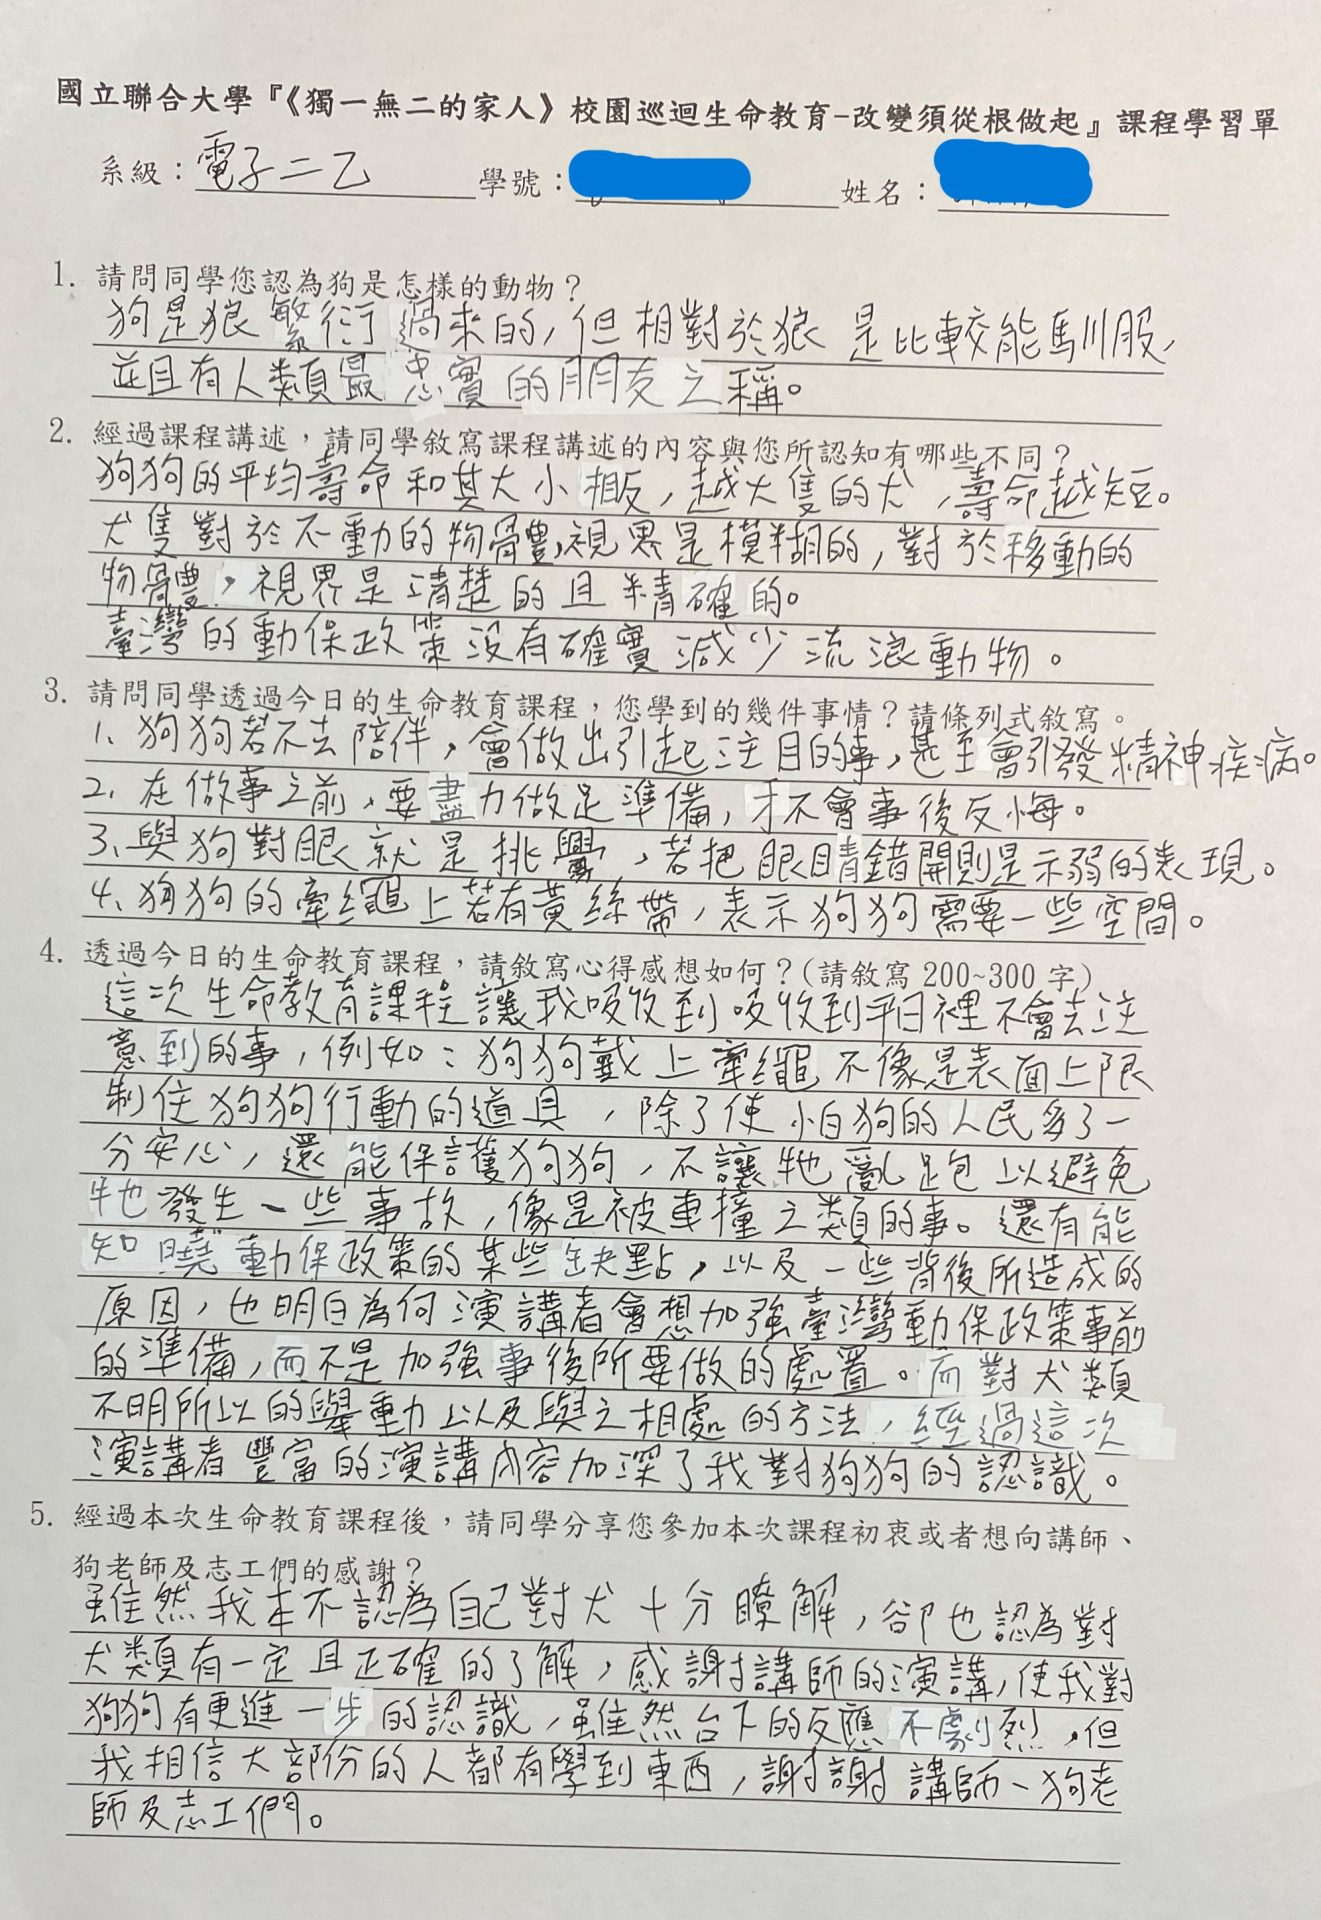 國立聯合大學『《獨一無二的家人》校園巡迴生命教育-改變須從根做起』課程學習單
系級：電子二乙 學號： 姓名：
1. 請問同學您認為狗是怎樣的動物？
狗是狼繁衍過來的，但相對於狼是比較能馴服，
並且有人類最忠實的朋友之稱。
2. 經過課程講述，請同學敘寫課程講述的內容與您所認知有哪些不同？
狗狗的平均壽命和其大小相反，越大隻的犬，壽命越短。
犬隻對於不動的物體，視界是模糊的，對於移動的
物體，視界是清楚的且精確的。
臺灣的動保政策沒有確實減少流浪動物。
3. 請問同學透過今日的生命教育課程，您學到的幾件事情？請條列式敘寫。
1、狗狗若不去陪伴，會做出引起注目的事，甚至會引發精神疾病。
2、在做事之前，要盡力做足準備，才不會事後反悔。
3、與狗對眼就是挑釁，若把眼睛錯開則是示弱的表現。
4、狗狗的牽繩上若有黃絲帶，表示狗狗需要一些空間。
4. 透過今日的生命教育課程，請敘寫心得感想如何？(請敘寫 200~300 字)
這次生命教育課程讓我吸收到吸收到平日裡不會去注
意到的事，例如：狗狗戴上牽繩不像是表面上限
制住狗狗行動的道具，除了使怕狗的人民多了一
分安心，還能保護狗狗，不讓牠亂跑以避免
牠發生一些事故，像是被車撞之類的事。還有能
知曉動保政策的某些缺點，以及一些背後所造成的
原因，也明白為何演講者會想加強臺灣動保政策事前
的準備，而不是加強事後所要做的處置。而對犬類
不明所以的舉動以及與之相處的方法，經過這次
演講者豐富的演講內容加深了我對狗狗的認識。
5. 經過本次生命教育課程後，請同學分享您參加本次課程初衷或者想向講師、
狗老師及志工們的感謝？
雖然我本不認為自己對犬十分瞭解，卻也認為對
犬類有一定且正確的了解，感謝講師的演講，使我對
狗狗有更進一步的認識，雖然台下的反應不劇烈，但
我相信大部份的人都有學到東西，謝謝講師、狗老
師及志工們。